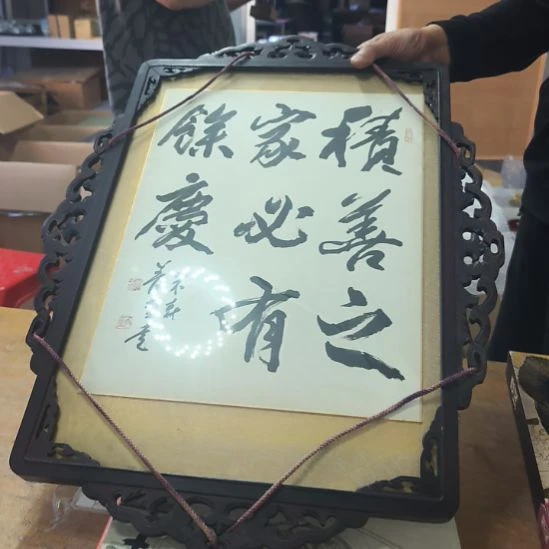 積善之
家必有
餘慶